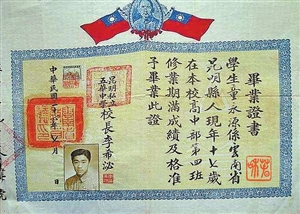 畢業證書
學生童永源係雲南省
昆明縣人現年十七歲
在本校高中部第四班
修業期滿成績及格准
予畢業此證
昆明私立
五華中學
校長李希泌
中華民國三十 年 月 日